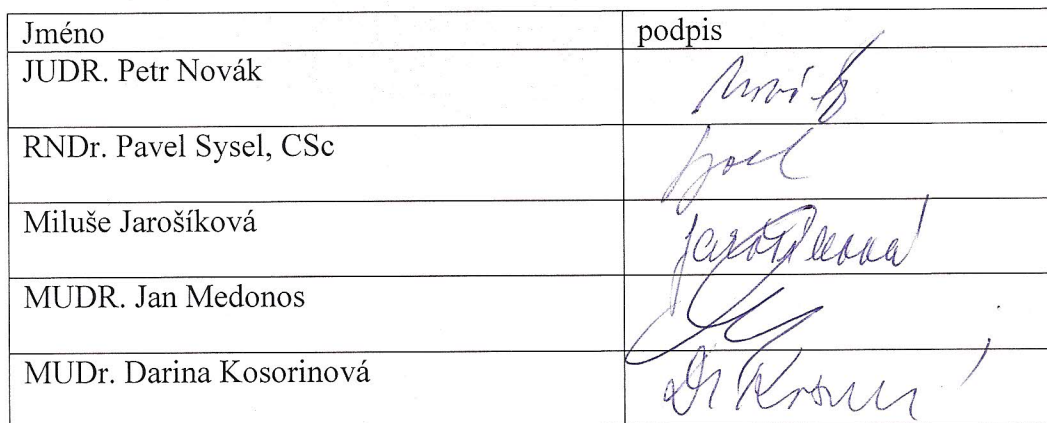 Jméno podpis
JUDR. Petr Novák Novák
RNDr. Pavel Sysel, CSc Sysel
Miluše Jarošíková Jarošíková
MUDR. Jan Medonos
MUDr. Darina Kosorinová